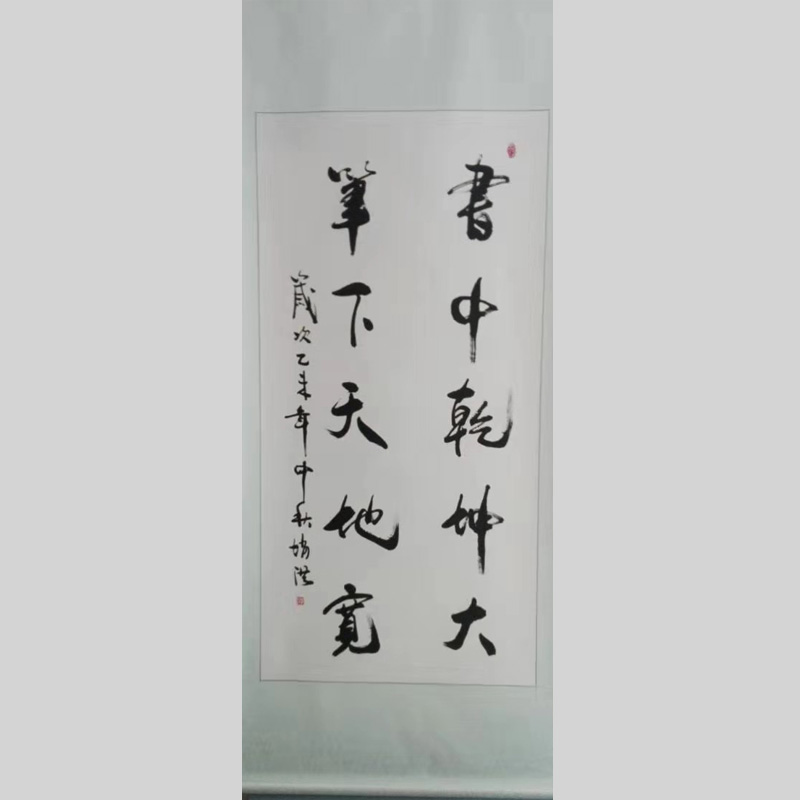 書中乾坤大
筆下天地寬
歲次乙未年中秋